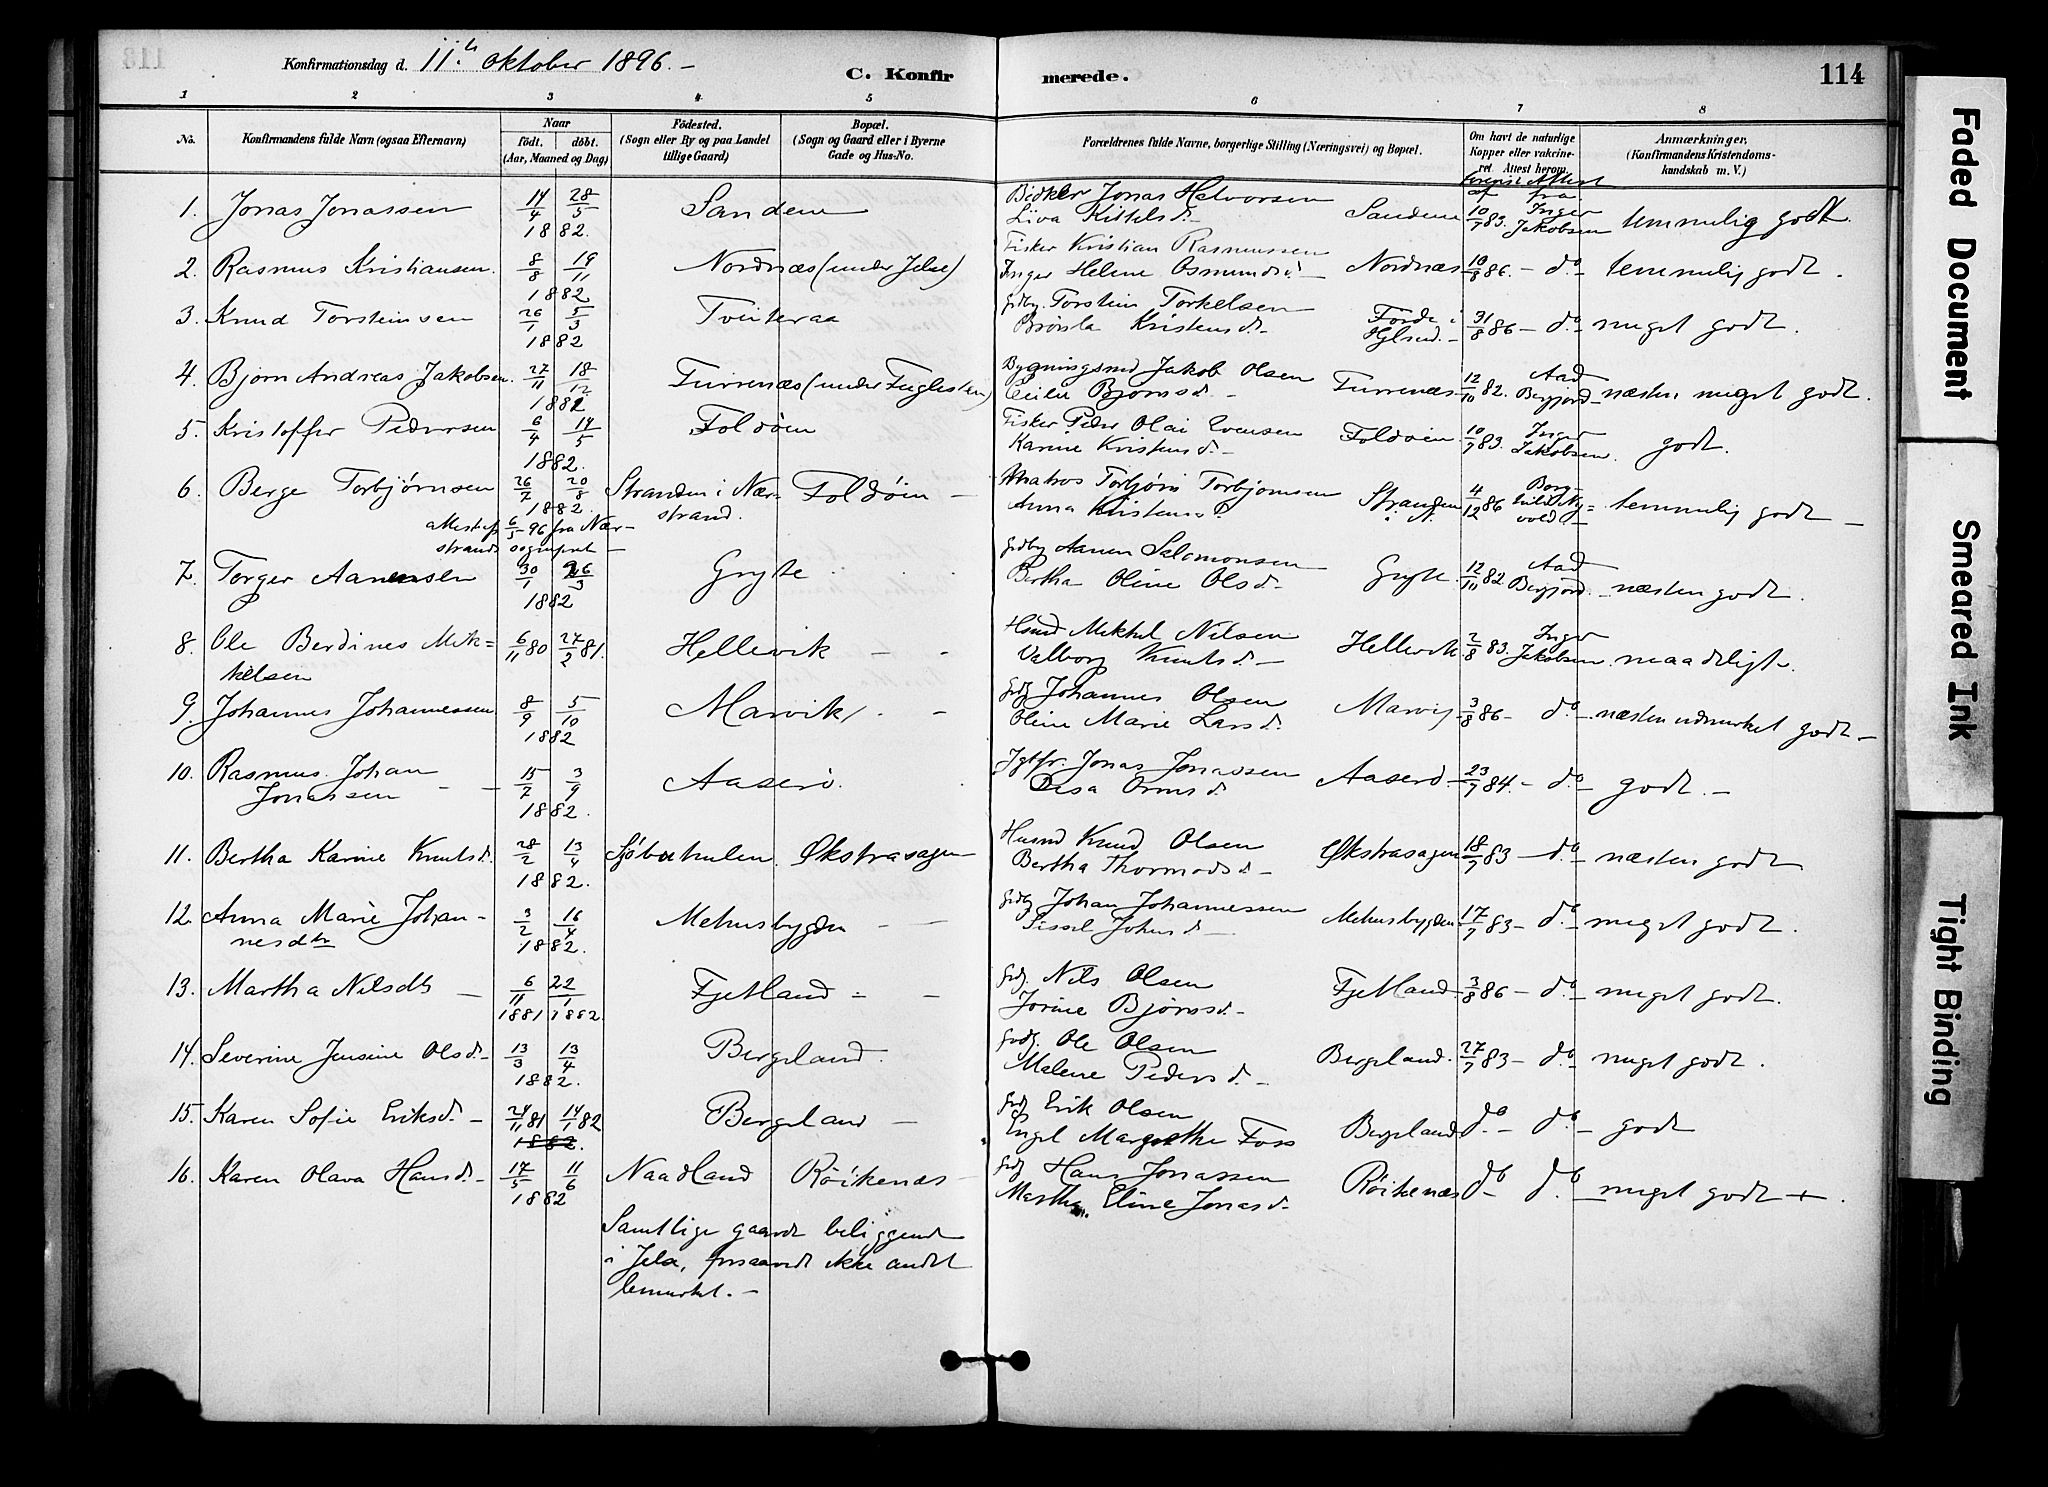 113
Konfirmationsdag d. 11te oktober 1896. –
C. Konfir
merede.
114
1 2 3 4 5 6 7 8
No.
Konfirmandens fulde Navn (ogsaa Efternavn)
Naar
født. døbt.
(Aar, Maaned og Dag)
Fødested.
(Sogn eller By og paa Landet
tillige Gaard)
Bopæl.
(Sogn og Gaard eller i Byerne
Gade og Hus-No.
Forældrenes fulde Navne, borgerlige Stilling (Næringsvei) og Bopæl.
Om havt de naturlige
Kopper eller vakcine-
ret. Attest herom.
Anmærkninger.
(Konfirmandens Kristendoms-
kundskab m. V.)
1. Jonas Jonassen 14/4 28/5 Sandene Jonas Halvorsen Sandene 10/7 83. Inger
1882 Kittelsd. Jakobsen temmelig godt.
2. Rasmus Kristiansen. 8/8 19/11 Nordnæs (under Jelse) Fisker Kristian Rasmussen
1882 Inger Helene Osmundsd. Nordnæs 10/8 86. – do – temmelig godt.
3. Knud Torsteinsen 26/1 5/3 Tveiteraa Torstein Torkelsen
1882 Kristensd. – 31/8 86 – do – meget godt.
4. Bjørn Andreas Jakobsen. 27/11 18/12 (under Fuglesten) Bygningsmd Jakob Olsen
1881 Bjørnsd. – 12/10 82. Aad Bergjord – næsten meget godt.
5. Kristoffer Pedersen 6/4 14/5 Foldøen Fisker Peder Olai Evensen
1882. Karine Kristensd. – Foldøen 10/7 83. Inger Jakobsen. godt.
6. Berge Torbjørnsen 26/7 20/8 Stranden i Nær- Foldøen – Matros Torbjørn Torbjørnsen
1882. strand. Anna Kristensd. Stranden 4/12 86 temmelig godt –
attest af 6/5 96 fra Nær-
strands sogneprest –
7. Torger Aanensen 30/1 26/3 Gryte Grdbr Aanen Salomonsen
1882 Bertha Oline Olsd. – Gryte 12/10 82. Aad Bergjord. – næsten godt.
8. Ole Berdines Mik= 6/11 80 27/2 81. Hellevik – – Husmd Mikkel Nilsen
kelsen Valborg Knutsd. – Hellevik 2/8 83. Inger Jakobsen. maadeligt.
9. Johannes Johannessen 8/9 5/10 Marvik – Johannes Olsen
1882 Oline Marie Larsd. Marvig 3/8 86 – do – næsten udmerket godt –
10. Rasmus Johan 15/7 3/9 Aaserö. Jonas Jonassen
Jonassen – – 1882. Ormsd. Aaserö. 23/7 84. – do – godt. –
11. Bertha Karine Knutsd. 28/2 13/4 Økstrasagen Husmd Knud Olsen
1882. Bertha Thormodsd. – Økstrasagen 18/7 83 – do – næsten godt
12. Anna Marie Johan- 3/2 16/4 Mehusbygden – – Johan Johannessen
nesdtr 1882. Sissel Johnsd. – Mehusbygden 17/7 83 – do – meget godt.
13. Martha Nilsdtr – 6/11 22/1 Fjetland – – Nils Olsen
1881 1882. Jorine Bjørnsd. – Fjetland – 3/8 86 – do – meget godt.
14. Severine Jensine Olsd. – 13/3 13/4 Bergeland. Ole Olsen
1882. Malene Pedersd. – Bergeland. 27/7 83 – do – meget godt.
15. Karen Sofie Eriksd. – 24/11 81 14/1 82 Bergeland – Erik Olsen
1882. Engel Margrethe Foss Bergeland do – do – godt
16. Karen Olava Hansd. – 17/5 11/6 Naadland Röikenæs – Hans Jonassen
1882 Martha Eline Jonasd. – Röikenæs do – do – meget godt + .
Samtlige gaarde beliggende
i Jelse, forsaavidt ikke andet
bemerket. –
Faded Document
Smeared Ink
Tight Binding